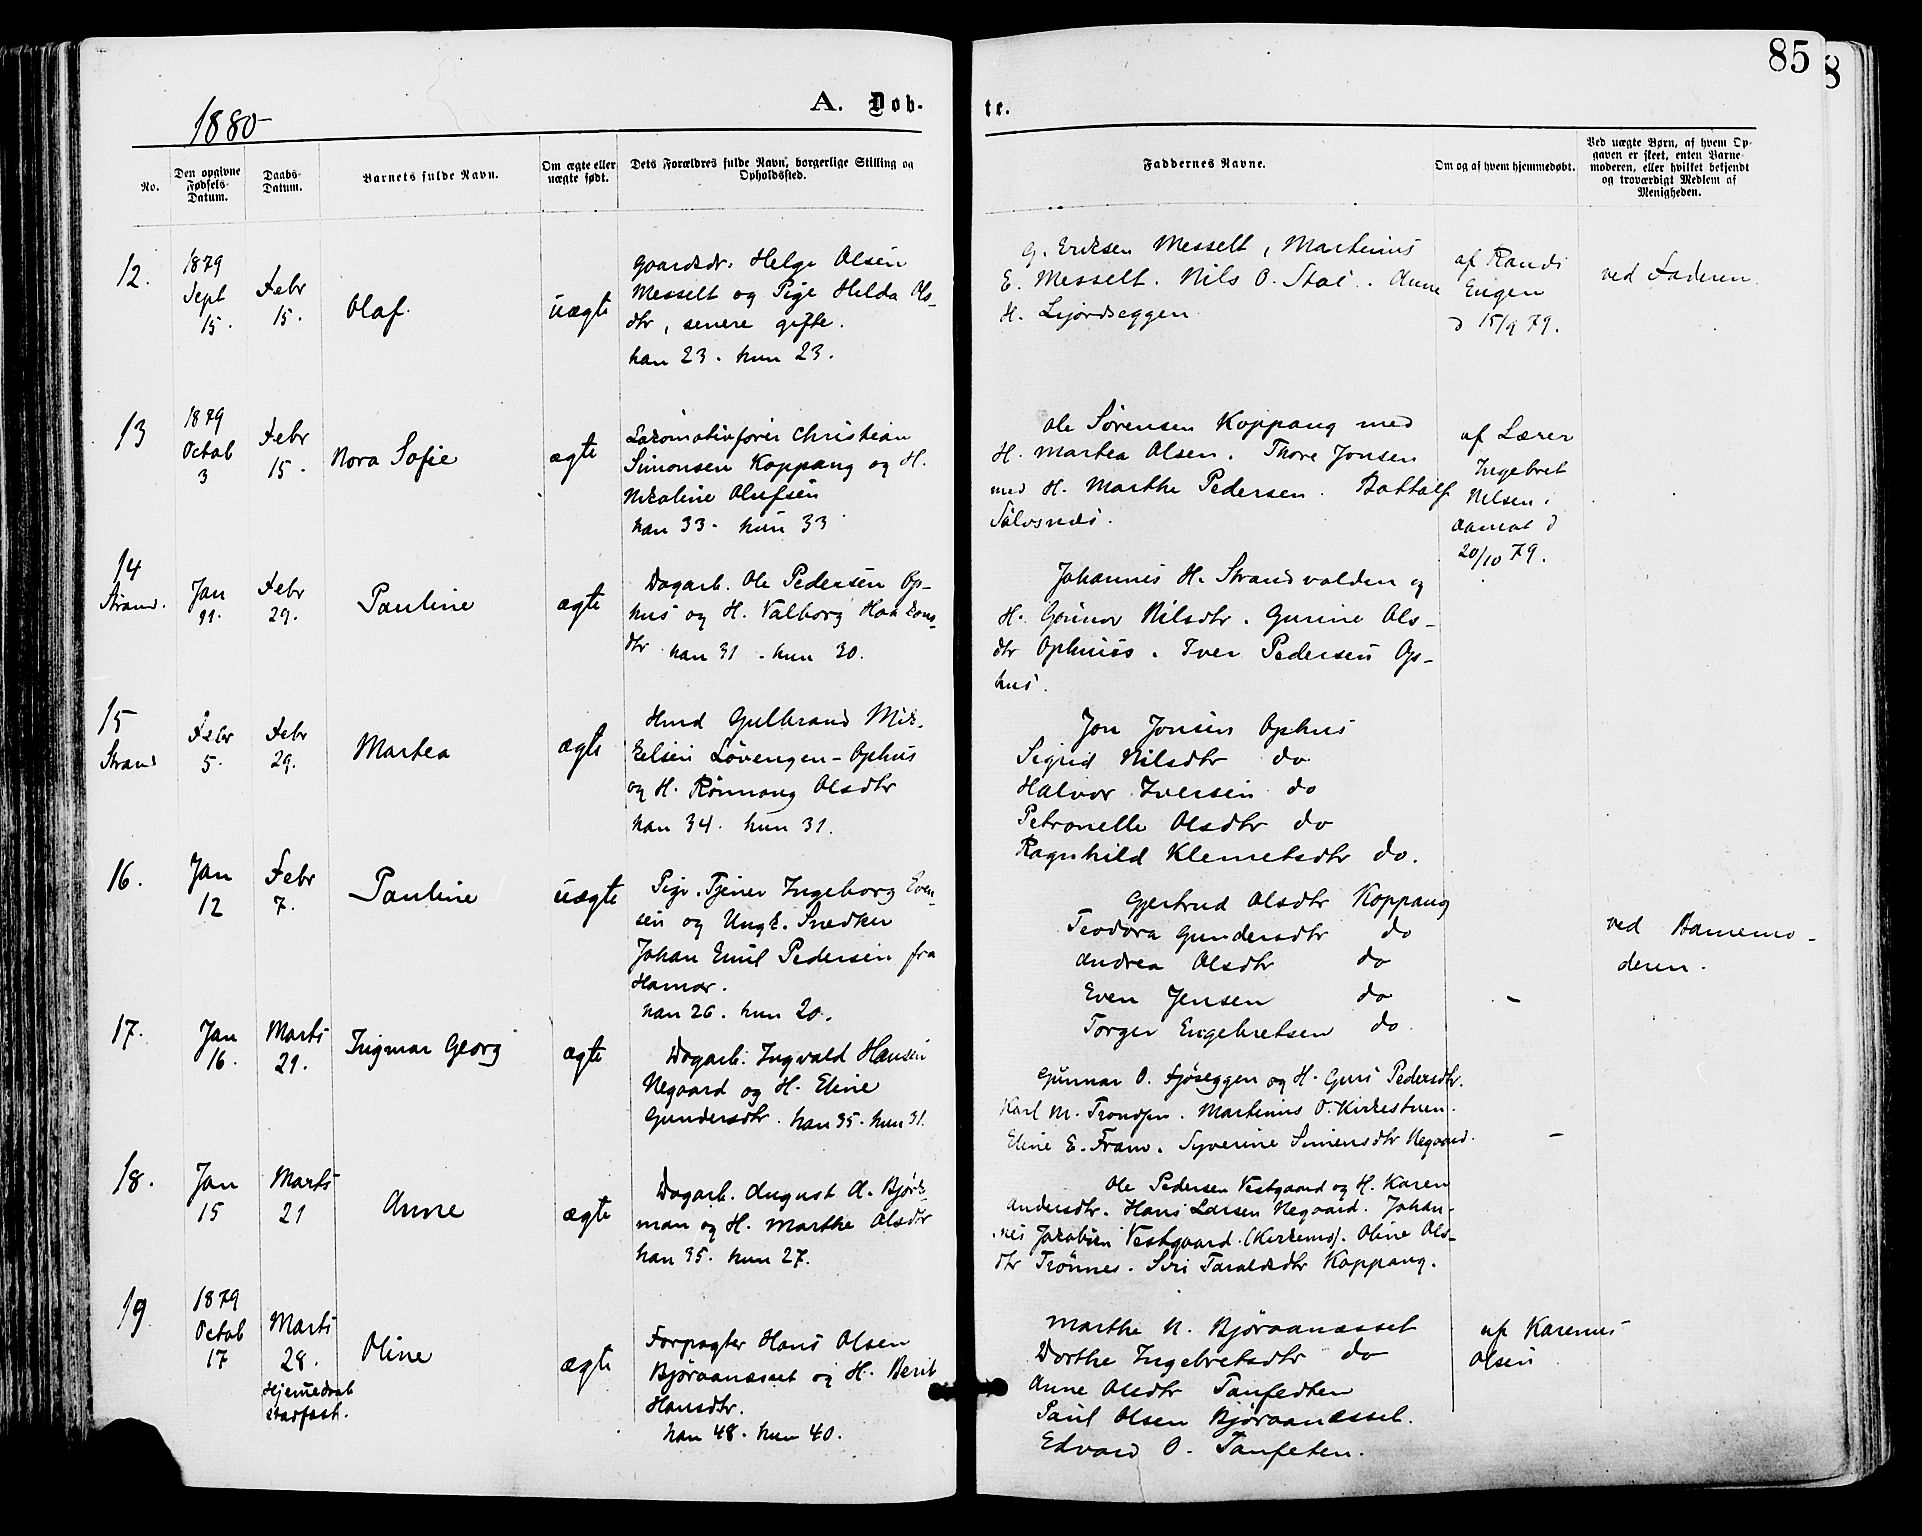 85
8
1880
A. Døb-
te.
No.
Den opgivne
Fødsels-
Datum.
Daabs-
Datum.
Barnets fulde Navn.
Om ægte eller
uægte født.
Dets Forældres fulde Navn, borgerlige Stilling og
Opholdssted.
Faddernes Navne.
Om og af hvem hjemmedøbt.
Ved uægte Børn, af hvem Op-
gaven er skeet, enten Barne-
moderen, eller hvilket bekjendt
og troværdigt Medlem af
Menigheden.
12.
1879
Sept
15.
Febr
15.
Olaf.
uægte
Gaardbr. Helge Olsen
Messelt og Pige Helda Ols-
dtr, senere gifte.
han 23. hun 23.
G. Eriksen Messelt, Martinus
E. Messelt. Nils O. Stai. Anne
H.
af Randi
Engen
d 15/9 79.
ved Faderen.
13
1879
Octob
3
Febr
15.
Nora Sofie
ægte
Lokomotivfører Christian
Simonsen Koppang og H.
Nikoline Olufsen
han 33. hun 33
Ole Sørensen Koppang med
H. Martea Olsen. Thore Jonsen
med H. Marthe Pedersen.
Sølvsnæs.
af Lærer
Ingebret
Nilsen i
Aamot d
20/10 79.
14
Strand.
Jan
21.
Febr
29.
Pauline
ægte
Dagarb. Ole Pedersen Op-
hus og H. Valborg Haakons-
dtr. han 31. hun 30.
Johannes H. Strandvolden og
H. Gunnor Nilsdtr. Gurine Ols-
dtr Ophuus. Iver Pedersen Op-
hus.
15
Strand
Febr
5.
Febr
29.
Martea
ægte
Hmd Gulbrand Mik-
kelsen Løvengen-Ophus
og H. Rønnaug Olsdtr
han 34. hun 31.
Jon Jonsen Ophus
Sigrid Nilsdtr do
Halvor Iversen do
Petronelle Olsdtr do
Ragnhild Klemetsdtr do.
16.
Jan
12
Febr
7.
Pauline
uægte
Pige. Tjener Ingeborg Even-
sen og Ungk. Snedker
Johan Emil Pedersen fra
Hamar.
han 26. hun 20.
Gjertrud Olsdtr Koppang
Teodora Gundersdtr do
Andrea Olsdtr do
Even Jensen do
Torger Engebretsen do
-
ved Barnemo-
deren.
17.
Jan
16.
Marts
21.
Ingmar Georg
ægte
Dagarb. Ingvald Hansen
Negaard og H. Eline
Gundersdtr. han 35. hun 31.
Gunnar O. Fjøseggen og H. Guri Pedersdtr.
Karl M. Trondsen. Martinus O. Kirkestuen.
Eline E. Fram. Syverine Simensdtr Negaard.
-
18.
Jan
15
Marts
21
Anne
ægte
Dagarb. August A. Bjørk-
man og H. Marthe Olsdtr
han 35. hun 27.
Ole Pedersen Vestgaard og H. Karen
Andersdtr. Hans Larsen Negaard. Johan-
nes Jakobsen Vestgaard. (Kirkems). Oline Ols-
dtr Trønnes. Siri Taraldsdtr Koppang.
19
1879
Octob
17
Marts
28.
Hjemmedaab
stadfæst.
Oline
ægte
Forpagter Hans Olsen
Bjøraanæsset og H. Berit
Hansdtr.
han 48. hun 40.
Marthe N. Bjøraanæsset
Dorthe Ingebretsdtr do
Anne Olsdtr Taufedten
Paul Olsen Bjøraanæsset.
Edvard O. Taufeten.
af Karenus
Olsen